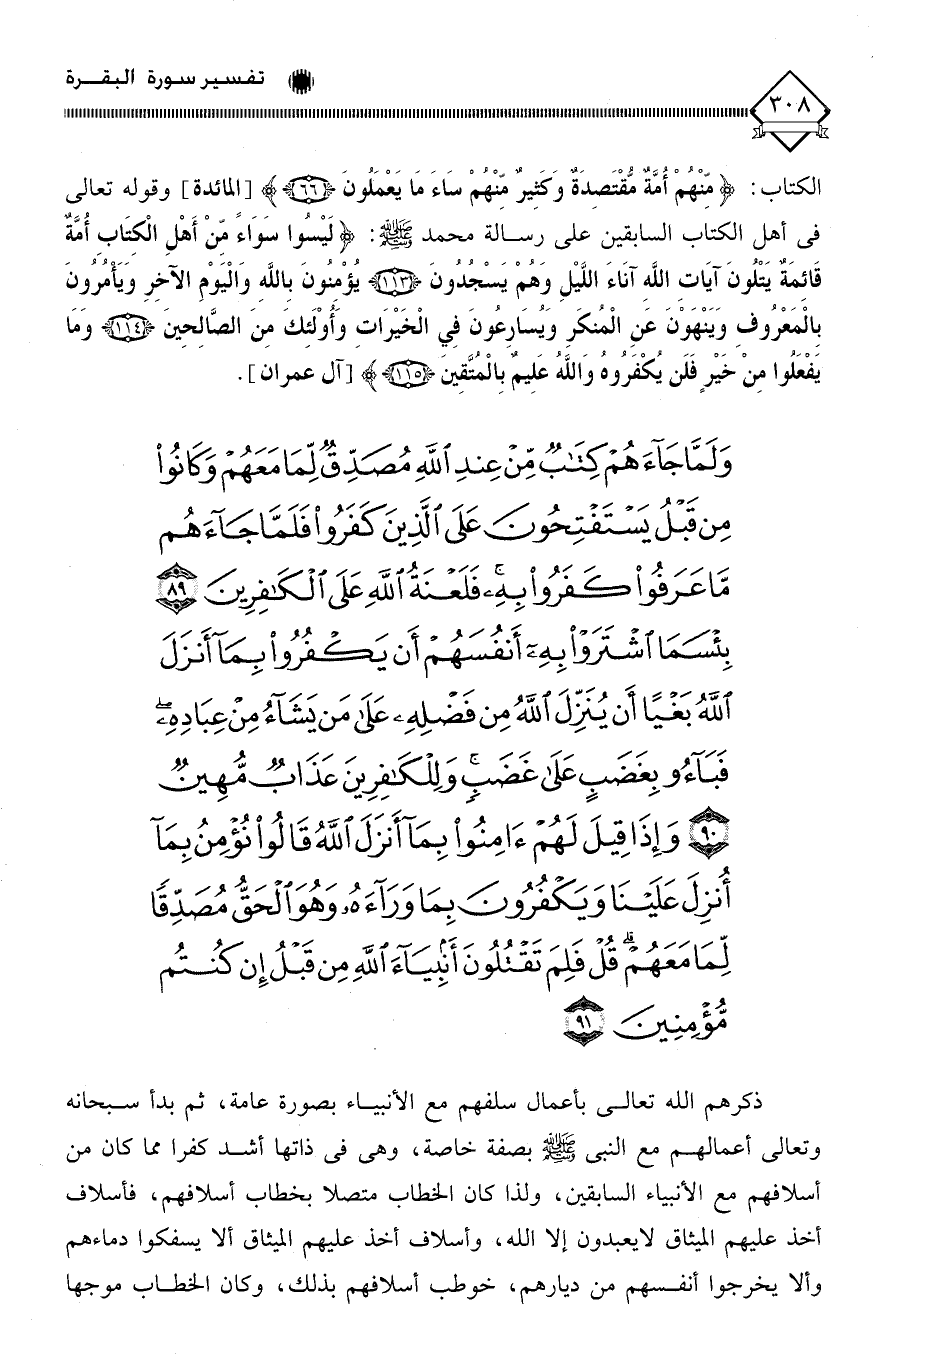 تفسير سورة البقرة
٣٠٨
الكتاب: ﴿ مِّنْهُمْ أُمَّةٌ مُّقْتَصِدَةٌ وَكَثِيرٌ مِّنْهُمْ سَاءَ مَا يَعْمَلُونَ ﴿٦٦﴾ ﴾ [المائدة] وقوله تعالى
فى أهل الكتاب السابقين على رسالة محمد ﷺ: ﴿ لَيْسُوا سَوَاءً مِّنْ أَهْلِ الْكِتَابِ أُمَّةٌ
قَائِمَةٌ يَتْلُونَ آيَاتِ اللَّهِ آنَاءَ اللَّيْلِ وَهُمْ يَسْجُدُونَ ﴿١١٣﴾ يُؤْمِنُونَ بِاللَّهِ وَالْيَوْمِ الآخِرِ وَيَأْمُرُونَ
بِالْمَعْرُوفِ وَيَنْهَوْنَ عَنِ الْمُنكَرِ وَيُسَارِعُونَ فِي الْخَيْرَاتِ وَأُوْلَئِكَ مِنَ الصَّالِحِينَ ﴿١١٤﴾ وَمَا
يَفْعَلُوا مِنْ خَيْرٍ فَلَن يُكْفَرُوهُ وَاللَّهُ عَلِيمٌ بِالْمُتَّقِينَ ﴿١١٥﴾ ﴾ [آل عمران].
وَلَمَّا جَآءَهُمْ كِتَٰبٌ مِّنْ عِندِ ٱللَّهِ مُصَدِّقٌ لِّمَا مَعَهُمْ وَكَانُوا۟
مِن قَبْلُ يَسْتَفْتِحُونَ عَلَى ٱلَّذِينَ كَفَرُوا۟ فَلَمَّا جَآءَهُم
مَّا عَرَفُوا۟ كَفَرُوا۟ بِهِۦ ۚ فَلَعْنَةُ ٱللَّهِ عَلَى ٱلْكَٰفِرِينَ ٨٩
بِئْسَمَا ٱشْتَرَوْا۟ بِهِۦٓ أَنفُسَهُمْ أَن يَكْفُرُوا۟ بِمَآ أَنزَلَ
ٱللَّهُ بَغْيًا أَن يُنَزِّلَ ٱللَّهُ مِن فَضْلِهِۦ عَلَىٰ مَن يَشَآءُ مِنْ عِبَادِهِۦ ۖ
فَبَآءُو بِغَضَبٍ عَلَىٰ غَضَبٍ ۚ وَلِلْكَٰفِرِينَ عَذَابٌ مُّهِينٌ
٩٠ وَإِذَا قِيلَ لَهُمْ ءَامِنُوا۟ بِمَآ أَنزَلَ ٱللَّهُ قَالُوا۟ نُؤْمِنُ بِمَآ
أُنزِلَ عَلَيْنَا وَيَكْفُرُونَ بِمَا وَرَآءَهُۥ وَهُوَ ٱلْحَقُّ مُصَدِّقًا
لِّمَا مَعَهُمْ ۗ قُلْ فَلِمَ تَقْتُلُونَ أَنۢبِيَآءَ ٱللَّهِ مِن قَبْلُ إِن كُنتُم
مُّؤْمِنِينَ ٩١
ذكرهم الله تعالى بأعمال سلفهم مع الأنبياء بصورة عامة، ثم بدأ سبحانه
وتعالى أعمالهم مع النبى ﷺ بصفة خاصة، وهى فى ذاتها أشد كفرا مما كان من
أسلافهم مع الأنبياء السابقين، ولذا كان الخطاب متصلا بخطاب أسلافهم، فأسلاف
أخذ عليهم الميثاق لايعبدون إلا الله، وأسلاف أخذ عليهم الميثاق ألا يسفكوا دماءهم
وألا يخرجوا أنفسهم من ديارهم، خوطب أسلافهم بذلك، وكان الخطاب موجها